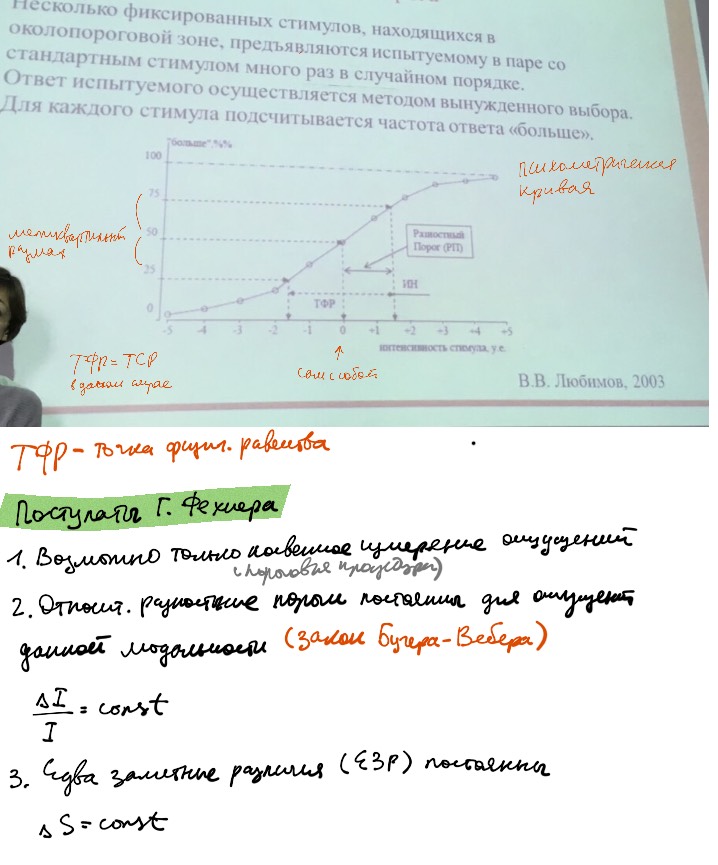 Несколько фиксированных стимулов, находящихся в
околопороговой зоне, предъявляются испытуемому в паре со
стандартным стимулом много раз в случайном порядке.
Ответ испытуемого осуществляется методом вынужденного выбора.
Для каждого стимула подсчитывается частота ответа «больше».
"больше",%%
100
75
50
25
0
психометрическая
кривая
межквартильный
размах
Разностный
Порог (РП)
ИН
ТФР
-5 -4 -3 -2 -1 0 +1 +2 +3 +4 +5
интенсивность стимула, у.е.
ТФР = ТСР
в данном случае
сам с собой
В.В. Любимов, 2003
ТФР - точка физич. равенства
Постулаты Г. Фехнера
1. Возможно только косвенное измерение ощущений
(пороговые процедуры)
2. Относит. разностные пороги постоянны для ощущений
данной модальности (Закон Бугера-Вебера)
ΔI
I = const
3. Едва заметные различия (ЕЗР) постоянны
ΔS = const